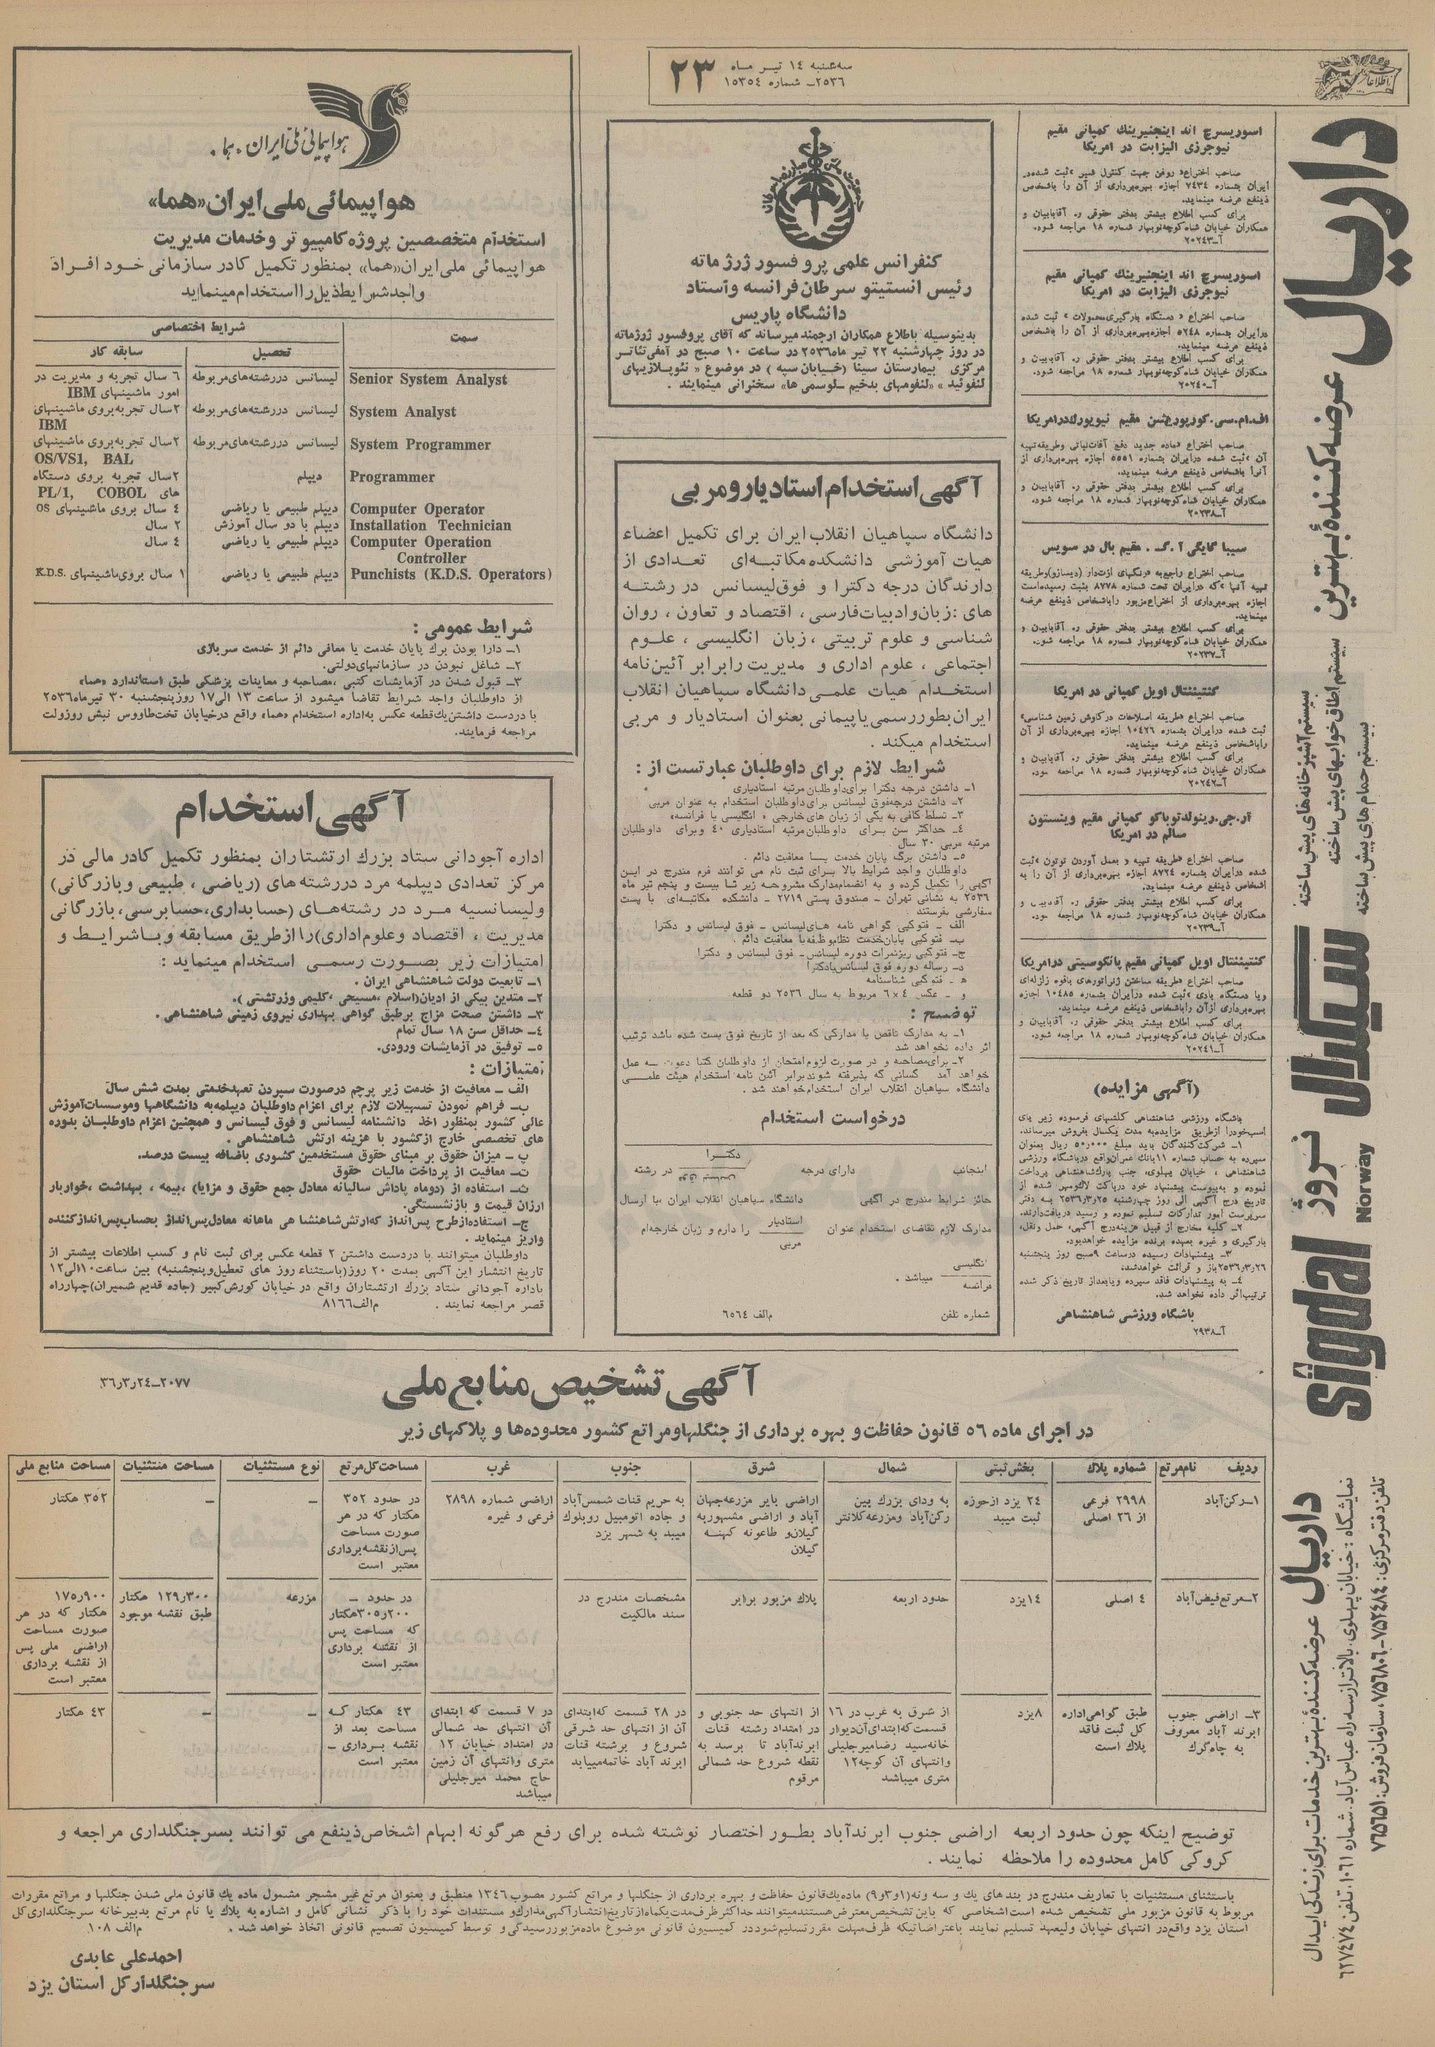 سه‌شنبه ۱۴ تیر ماه
۲۵۳۶ـ شماره ۱۵۳۵۴
۲۳
اسوریسرچ اند اینجنیرینك کمپانی مقیم
نیوجرزی الیزابت در امریکا
صاحب اختراع« روغن جهت کنترل فیبر »ثبت شده‌در
ایران بشماره ۷۴۳۴ اجازه بهره‌برداری از آن را باشخاص
ذینفع عرضه مینماید.
برای کسب اطلاع بیشتر بدفتر حقوقی ر. آقابابیان و
همکاران خیابان شاه‌کوچه‌نوبهار شماره ۱۸ مراجعه شود.
آـ۲۰۲۴۳
اسوریسرچ اند اینجنیرینك کمپانی مقیم
نیوجرزی الیزابت در امریکا
صاحب اختراع « دستگاه بارگیری‌محصولات » ثبت شده
درایران بشماره ۵۲۴۸ اجازه‌بهره‌برداری از آن را باشخاص
ذینفع عرضه مینماید.
برای کسب اطلاع بیشتر بدفتر حقوقی ر. آقابابیان و
همکاران خیابان شاه‌کوچه‌نوبهار شماره ۱۸ مراجعه شود.
آـ۲۰۲۴۰
اف.ام.سی.کورپوریشن مقیم نیویورك‌درامریکا
صاحب اختراع «ماده جدید دفع آفات‌نباتی وطریقه‌تهیه
آن »ثبت شده درایران بشماره ۵۵۵۱ اجازه بهره‌برداری از
آنرا باشخاص ذینفع عرضه مینماید.
برای کسب اطلاع بیشتر بدفتر حقوقی ر. آقابابیان و
همکاران خیابان شاه‌کوچه‌نوبهار شماره ۱۸ مراجعه شود.
آـ۲۰۲۳۸
سیبا گایگی آ.گ. مقیم بال در سویس
صاحب اختراع راجع‌به «رنگهای ازت‌دار (دیسازو)وطریقه
تهیه آنها »که درایران تحت شماره ۸۷۷۸ بثبت رسیده‌است
اجازه بهره‌برداری از اختراع‌مزبور راباشخاص ذینفع عرضه
مینماید.
برای کسب اطلاع بیشتر بدفتر حقوقی ر. آقابابیان و
همکاران خیابان شاه‌کوچه‌نوبهار شماره ۱۸ مراجعه شود.
آـ۲۰۲۳۷
کنتیننتال اویل کمپانی در امریکا
صاحب اختراع «طریقه اصلاحات درکاوش زمین شناسی»
ثبت شده درایران بشماره ۱۰۴۲۶ اجازه بهره‌برداری از آن
راباشخاص ذینفع عرضه مینماید.
برای کسب اطلاع بیشتر بدفتر حقوقی ر. آقابابیان و
همکاران خیابان شاه‌کوچه‌نوبهار شماره ۱۸ مراجعه شود.
آـ۲۰۲۴۲
آر.جی.رینولدتوباکو کمپانی مقیم وینستون
سالم در امریکا
صاحب اختراع «طریقه تهیه و بعمل آوردن توتون »ثبت
شده درایران بشماره ۸۷۲۴ اجازه بهره‌برداری از آن را به
اشخاص ذینفع عرضه مینماید.
برای کسب اطلاع بیشتر بدفتر حقوقی ر. آقابابیان و
همکاران خیابان شاه‌کوچه‌نوبهار شماره ۱۸ مراجعه شود.
آـ۲۰۲۳۹
کنتیننتال اویل کمپانی مقیم پانکوسیتی درامریکا
صاحب اختراع «طریقه ساختن ژنراتورهای بالقوه زلزله‌ای
ویا دستگاه بادی »ثبت شده درایران بشماره ۱۰۴۸۵ اجازه
بهره‌برداری ازآن راباشخاص ذینفع عرضه مینماید.
برای کسب اطلاع بیشتر بدفتر حقوقی ر. آقابابیان و
همکاران خیابان شاه‌کوچه‌نوبهار شماره ۱۸ مراجعه شود.
آـ۲۰۲۴۱
(آگهی مزایده)
باشگاه ورزشی شاهنشاهی کلشهای فرسوده زیر پای
اسب‌خودرا ازطریق مزایده‌به مدت یکسال بفروش میرساند.
۱ـ شرکت‌کنندگان باید مبلغ ۵۰٫۰۰۰ ریال بعنوان
سپرده به حساب شماره ۱۱بانك عمران‌واقع درباشگاه ورزشی
شاهنشاهی ، خیابان پهلوی، جنب پارك‌شاهنشاهی پرداخت
نموده و به‌پیوست پیشنهاد خود درپاکت لاك‌ومهر شده از
تاریخ درج آگهی الی روز چهارشنبه ۲۵۳۶ر۳ر۲۵ به دفتر
سرپرست امور تدارکات تسلیم نموده و رسید دریافت‌دارند.
۲ـ کلیه مخارج از قبیل هزینه‌درج آگهی، حمل ونقل،
بارگیری و غیره بعهده برنده مزایده خواهدبود.
۳ـ پیشنهادات رسیده درساعت ۹صبح روز پنجشنبه
۲۵۳۶ر۳ر۲۶باز و قرائت خواهدشد.
۴ـ به پیشنهادات فاقد سپرده ویابعداز تاریخ ذکر شده
ترتیب‌اثر داده نخواهد شد.
باشگاه ورزشی شاهنشاهی
آـ۲۹۳۸
داریال عرضه‌کنندهٔ بهترین
سیستم آشپزخانه‌های پیش ساخته
سیستم اطاق خوابهای پیش ساخته
سیستم حمام های پیش ساخته
سیگدال نروژ
Sigdal Norway
داریال عرضه‌کنندهٔ بهترین خدمات برای زندگی ایدال
نمایشگاه : خیابان پهلوی، بالاتر از سه راه عباس‌آباد، شماره ۱۰۶۱، تلفن ۶۲۷۴۷۴
تلفن دفتر مرکزی: ۷۵۲۴۸۴-۷۵۶۸۰۶، سازمان فروش: ۷۶۵۶۵۱
کنفرانس علمی پروفسور ژرژماته
رئیس انستیتو سرطان‌فرانسه واستاد
دانشگاه پاریس
بدینوسیله باطلاع همکاران ارجمند میرساند که آقای پروفسور ژرژماته
در روز چهارشنبه ۲۲ تیر ماه۲۵۳۶ در ساعت ۱۰ صبح در آمفی‌تئاتر
مرکزی بیمارستان سینا (خیابان سپه ) در موضوع « نئوپلازیهای
لنفوئید » «لنفومهای بدخیم ـ‌لوسمی ها» سخنرانی مینمایند .
آگهی استخدام استادیارومربی
دانشگاه سپاهیان انقلاب ایران برای تکمیل اعضاء
هیات آموزشی دانشکده مکاتبه‌ای تعدادی از
دارندگان درجه دکترا و فوق‌لیسانس در رشته
های :زبان‌وادبیات‌فارسی ، اقتصاد و تعاون ، روان
شناسی و علوم تربیتی ، زبان انگلیسی ، علوم
اجتماعی ، علوم اداری و مدیریت رابرابر آئین‌نامه
استخدام هیات علمی دانشگاه سپاهیان انقلاب
ایران بطوررسمی یا پیمانی بعنوان استادیار و مربی
استخدام میکند .
شرایط لازم برای داوطلبان عبارتست از :
۱ـ داشتن درجه دکترا برای‌داوطلبان مرتبه استادیاری
۲ـ داشتن درجه‌فوق لیسانس برای‌داوطلبان استخدام به عنوان مربی
۳ـ تسلط کافی به یکی از زبان های‌خارجی « انگلیسی یا فرانسه»
۴ـ حداکثر سن برای داوطلبان مرتبه استادیاری ۴۰ وبرای داوطلبان
مرتبه مربی ۳۰ سال
۵ـ داشتن برگ پایان خدمت یا معافیت دائم .
داوطلبان واجد شرایط بالا برای ثبت نام می توانند فرم مندرج در این
آگهی را تکمیل کرده و به انضمام‌مدارک مشروحه زیر تا بیست و پنجم تیر ماه
۲۵۳۶ به نشانی تهران ـ صندوق پستی ۲۷۱۹ ـ دانشکده مکاتبه‌ای با پست
سفارشی بفرستند
الف ـ فتوکپی گواهی نامه های‌لیسانس ـ فوق لیسانس و دکترا
ب‌ـ فتوکپی پایان‌خدمت نظام‌وظیفه‌یا معافیت دائم .
ج‌ـ فتوکپی ریزنمرات دوره لیسانس‌ـ فوق لیسانس و دکترا
د‌ـ رساله دوره فوق لیسانس‌یادکترا
هـ ـ فتوکپی شناسنامه
و ـ عکس ۴×۶ مربوط به سال ۲۵۳۶ دو قطعه
توضیح :
۱ـ به مدارك ناقص یا مدارکی که بعد از تاریخ فوق پست شده باشد ترتیب
اثر داده نخواهد شد
۲ـ برای‌مصاحبه و در صورت لزوم‌امتحان از داوطلبان کتبا دعوت به عمل
خواهد آمد کسانی که پذیرفته شوندبرابر آئین نامه استخدام هیئت علمی
دانشگاه سپاهیان انقلاب ایران استخدام‌خواهند شد .
درخواست استخدام
اینجانب دارای درجه دکترا / فوق لیسانس در رشته
حائز شرایط مندرج در آگهی دانشگاه سپاهیان انقلاب ایران با ارسال
مدارك لازم تقاضای استخدام عنوان استادیار / مربی را دارم و زبان خارجه‌ام
انگلیسی / فرانسه میباشد .
شماره تلفن م‌الف ۶۵۶۴
هواپیمائی ملی ایران . هما .
هواپیمائی ملی ایران «هما»
استخدام متخصصین پروژه کامپیوتر و خدمات مدیریت
هواپیمائی ملی ایران«هما» بمنظور تکمیل کادر سازمانی خود افراد
واجد شرایط ذیل را استخدام مینماید
سمت شرایط اختصاصی
تحصیل سابقه کار
Senior System Analyst لیسانس دررشته‌های‌مربوطه ۶ سال تجربه و مدیریت در
امور ماشینهای IBM
System Analyst لیسانس دررشته‌های‌مربوطه ۲سال تجربه‌بروی ماشینهای
IBM
System Programmer لیسانس دررشته‌های‌مربوطه ۲سال تجربه‌بروی ماشینهای
OS/VS1, BAL
Programmer دیپلم ۲سال تجربه بروی دستگاه
های PL/1, COBOL
Computer Operator دیپلم طبیعی یا ریاضی ۴ سال بروی ماشینهای OS
Installation Technician دیپلم با دو سال آموزش ۲ سال
Computer Operation دیپلم طبیعی یا ریاضی . ۴ سال
Controller
Punchists (K.D.S. Operators) دیپلم طبیعی یا ریاضی ۱ سال بروی‌ماشینهای K.D.S.
شرایط عمومی :
۱ـ دارا بودن برك پایان خدمت یا معافی دائم از خدمت سربازی
۲ـ شاغل نبودن در سازمانهای‌دولتی.
۳ـ قبول شدن در آزمایشات کتبی ،مصاحبه و معاینات پزشکی طبق استاندارد «هما»
از داوطلبان واجد شرایط تقاضا میشود از ساعت ۱۳ الی۱۷ روزپنجشنبه ۳۰ تیرماه ۲۵۳۶
با دردست داشتن‌یك‌قطعه عکس به‌اداره استخدام «هما» واقع درخیابان تخت‌طاووس نبش روزولت
مراجعه فرمایند.
آگهی استخدام
اداره آجودانی ستاد بزرك ارتشتاران بمنظور تکمیل کادر مالی در
مرکز تعدادی دیپلمه مرد دررشته های (ریاضی ، طبیعی وبازرگانی)
ولیسانسیه مرد در رشته‌های (حسابداری،حسابرسی،بازرگانی
مدیریت ، اقتصاد وعلوم‌اداری)را ازطریق مسابقه وباشرایط و
امتیازات زیر بصورت رسمی استخدام مینماید :
۱ـ تابعیت دولت شاهنشاهی ایران .
۲ـ متدین بیکی از ادیان(اسلام ،مسیحی ،کلیمی وزرتشتی ).
۳ـ داشتن صحت مزاج برطبق گواهی بهداری نیروی زمینی شاهنشاهی .
۴ـ حداقل سن ۱۸ سال تمام
۵ـ توفیق در آزمایشات ورودی.
امتیازات :
الف ـ معافیت از خدمت زیر پرچم درصورت سپردن تعهدخدمتی بمدت شش سال
ب‌ـ فراهم نمودن تسهیلات لازم برای اعزام داوطلبان دیپلمه‌به دانشگاهها وموسسات‌آموزش
عالی کشور بمنظور اخذ دانشنامه لیسانس و فوق لیسانس و همچنین اعزام داوطلبان بدوره
های تخصصی خارج ازکشور با هزینه ارتش شاهنشاهی .
پ ـ میزان حقوق بر مبنای حقوق مستخدمین کشوری باضافه بیست درصد.
ت‌ـ معافیت از پرداخت مالیات حقوق
ث‌ـ استفاده از (دوماه پاداش سالیانه معادل جمع حقوق و مزایا) ،بیمه ، بهداشت ،خواربار
ارزان قیمت و بازنشستگی.
ج‌ـ استفاده‌ازطرح پس‌انداز که‌ارتش‌شاهنشا هی ماهانه معادل‌پس‌انداز بحساب‌پس‌اندازکننده
واریز مینماید .
داوطلبان میتوانند با دردست داشتن ۲ قطعه عکس برای ثبت نام و کسب اطلاعات بیشتر از
تاریخ انتشار این آگهی بمدت ۲۰ روز(باستثناء روز های تعطیل‌وپنجشنبه) بین ساعت۱۰الی۱۲
باداره آجودانی ستاد بزرك ارتشتاران واقع در خیابان کورش‌کبیر (جاده قدیم شمیران)چهارراه
قصر مراجعه نمایند . م‌الف۸۱۶۶
آگهی تشخیص منابع ملی
۲۰۷۷ـ۳۶ر۳ر۲۴
در اجرای ماده ۵۶ قانون حفاظت و بهره برداری از جنگلها ومراتع کشور محدوده‌ها و پلاکهای زیر
ردیف نام‌مرتع شماره پلاك بخش‌ثبتی شمال شرق جنوب غرب مساحت‌کل‌مرتع نوع مستثنیات مساحت مستثنیات مساحت منابع ملی
۱ـ رکن‌آباد ۲۹۹۸ فرعی از ۲۶ اصلی ۲۴ یزد ازحوزه ثبت میبد به ودای بزرك بین رکن‌آباد ومزرعه‌کلانتر اراضی بایر مزرعه‌جهان آباد و اراضی مشهوربه گیلان‌و طاعونه کهنه گیلان به حریم قنات شمس‌آباد و جاده اتومبیل روبلوك میبد به شهر یزد اراضی شماره ۲۸۹۸ فرعی و غیره در حدود ۳۵۲ هکتار که در هر صورت مساحت پس‌ازنقشه‌برداری معتبر است ـ ـ ۳۵۲ هکتار
۲ـ مرتع‌فیض‌آباد ۴ اصلی ۱۴یزد حدود اربعه پلاك مزبور برابر مشخصات مندرج در سند مالکیت در حدود ـ ۳۰۵ر۲۰۰هکتار که مساحت پس از نقشه برداری معتبر است مزرعه ۱۲۹ر۳۰۰ هکتار طبق نقشه موجود ۱۷۵ر۹۰۰ هکتار که در هر صورت مساحت اراضی ملی پس از نقشه برداری معتبر است
۳ـ اراضی جنوب ابرند آباد معروف به چاه‌گرك طبق گواهی‌اداره کل ثبت فاقد پلاك است ۸یزد از شرق به غرب در ۱۶ قسمت که‌ابتدای‌آن‌دیوار خانه‌سید رضامیرجلیلی وانتهای آن کوچه۱۲ متری میباشد از انتهای حد جنوبی و در امتداد رشته قنات ابرندآباد تا برسد به نقطه شروع حد شمالی مرقوم در ۲۸ قسمت که‌ابتدای آن از انتهای حد شرقی شروع و برشته قنات ابرند آباد خاتمه‌مییابد در ۷ قسمت که ابتدای آن انتهای حد شمالی در امتداد خیابان ۱۲ متری وانتهای آن زمین حاج محمد میرجلیلی میباشد ۴۳ هکتار که مساحت بعد از نقشه برداری ـ معتبر است ـ ـ ۴۳ هکتار
توضیح اینکه چون حدود اربعه اراضی جنوب ابرندآباد بطور اختصار نوشته شده برای رفع هرگونه ابهام اشخاص‌ذینفع می توانند بسرجنگلداری مراجعه و
کروکی کامل محدوده را ملاحظه نمایند .
باستثنای مستثنیات با تعاریف مندرج در بند های یك و سه ونه(۱و۳و۹) ماده‌یك‌قانون حفاظت و بهره برداری از جنگلها و مراتع کشور مصوب ۱۳۴۶ منطبق و بعنوان مرتع غیر مشجر مشمول ماده یك قانون ملی شدن جنگلها و مراتع مقررات
مربوط به قانون مزبور ملی تشخیص شده است‌اشخاصی که باین تشخیص‌معترض‌هستندمیتوانند حداکثر ظرف‌مدت‌یکماه‌از تاریخ‌انتشارآگهی‌مدارك‌و مستندات خود را با ذکر نشانی کامل و اشاره به پلاك یا نام مرتع بدبیرخانه سرجنگلداری‌کل
استان یزد واقع‌در انتهای خیابان ولیعهد تسلیم نمایند باعتراضاتیکه ظرف‌مهلت مقررتسلیم‌شوددر کمیسیون قانونی موضوع ماده‌مزبوررسیدگی‌و توسط کمیسیون تصمیم قانونی اتخاذ خواهد شد . م‌الف ۱۰۸
احمدعلی عابدی
سرجنگلدارکل استان یزد